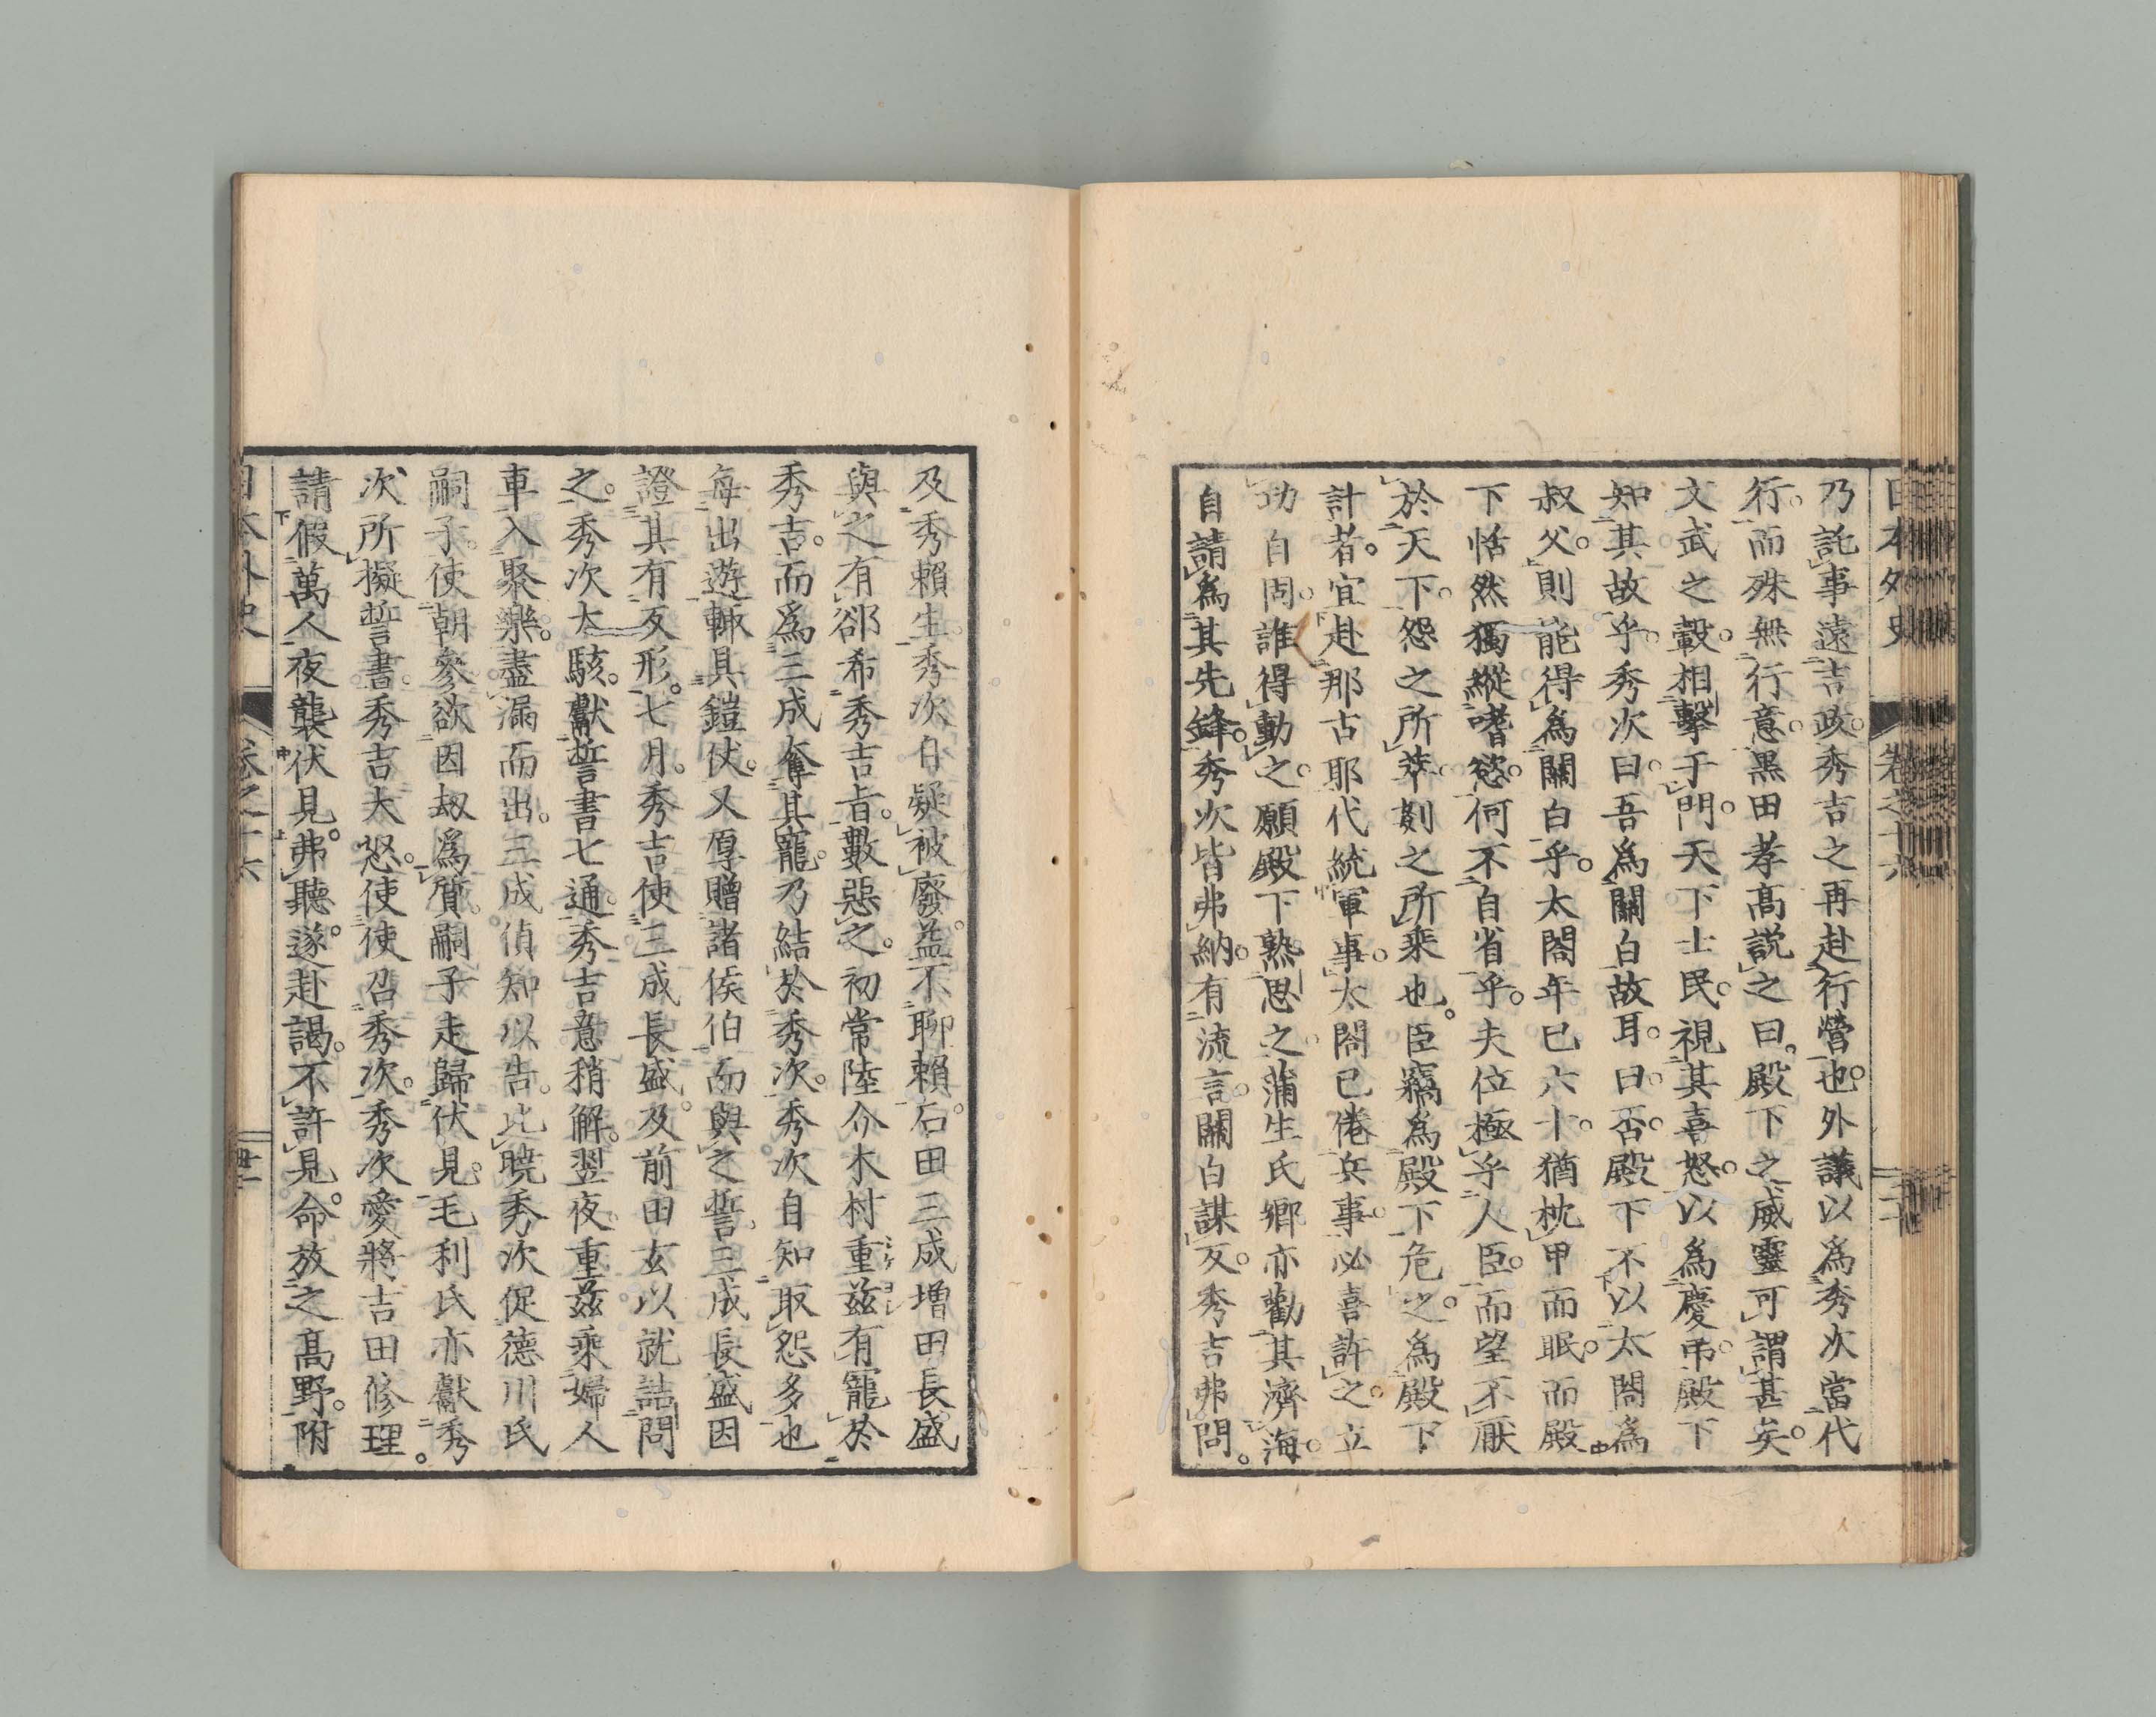 日本外史 卷之十六 二十
乃託事遠吉政。秀吉之再赴行營也。外議以爲秀次當代
行。而殊無行意。黒田孝高説之曰。殿下之威靈可謂甚矣。
文武之轂。相擊于門。天下士民。視其喜怒。以爲慶弔。殿下
知其故乎。秀次曰。吾爲關白故耳。曰。否。殿下不以太閤爲
叔父。則能得爲關白乎。太閤年已六十。猶枕甲而眠。而殿
下恬然獨縱嗜慾。何不自省乎。夫位極乎人臣。而望不厭
於天下。怨之所萃。㓨之所乘也。臣竊爲殿下危之。爲殿下
計者。宜赴那古耶代統軍事。太閤已倦兵事。必喜許之。立
功自固。誰得動之。願殿下熟思之。蒲生氏郷亦勸其濟海。
自請爲其先鋒。秀次皆弗納。有流言。關白謀反。秀吉弗問。
及秀賴生。秀次自疑被廢。益不聊賴。石田三成增田長盛
與之有郤。希秀吉旨。數惡之。初常陸介木村重茲有寵於
秀吉。而爲三成奪其寵。乃結於秀次。秀次自知取怨多也
每出遊。輙具鎧仗。又厚贈諸侯伯而與之誓。三成長盛因
證其有反形。七月。秀吉使三成長盛。及前田玄以就詰問
之。秀次大駭。獻誓書七通。秀吉意稍解。翌夜。重茲乘婦人
車入聚樂。盡漏而出。三成偵知以告。比曉秀次促德川氏
嗣子。使朝參。欲因刼爲質。嗣子走歸伏見。毛利氏亦獻秀
次所擬誓書。秀吉大怒。使使召秀次。秀次愛將吉田修理。
請假萬人夜襲伏見。弗聽。遂赴謁。不許見。命放之高野。附
日本外史 卷之十六 廿一